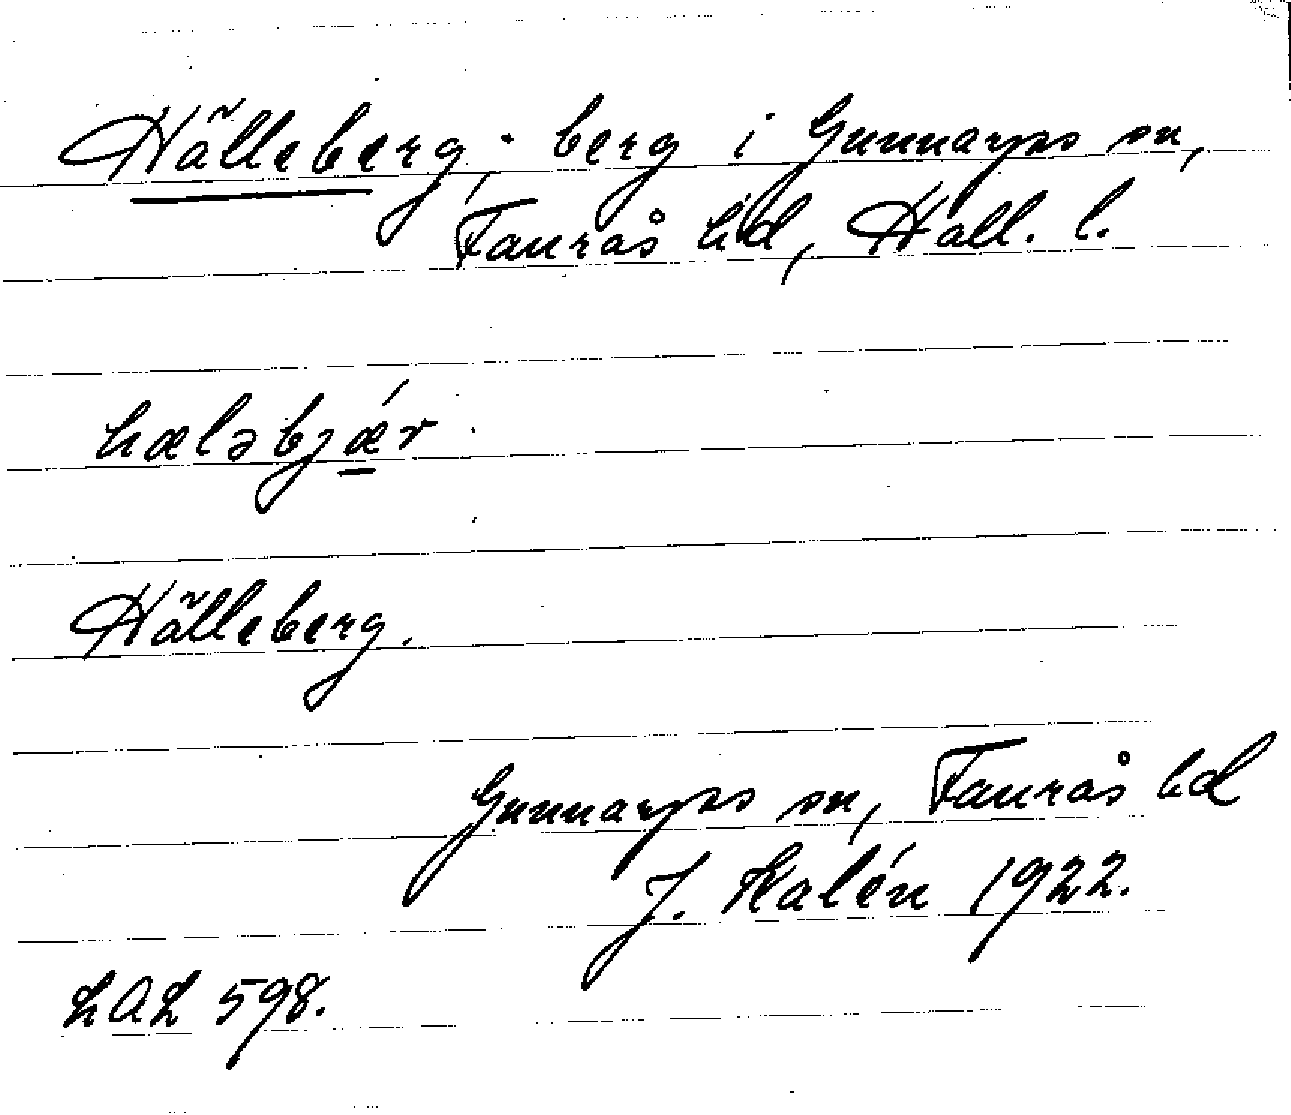 Hälleberg, berg i Gunnarps sn,
Faurås hd, Hall. l.
hæləbjǽr
Hälleberg.
Gunnarps sn, Faurås hd
J. Kalén 1922.
LAL 598.